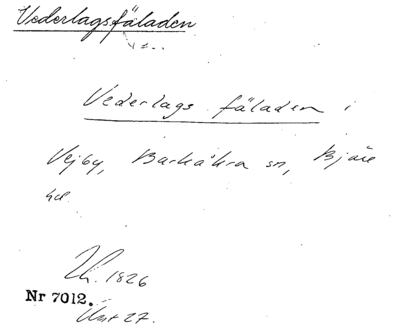 Vederlagsfäladen
Vederlags fäladen i
Vejby, Barkåkra sn, Bjäre
hd
Kh. 1826
Nr 7012.
27.